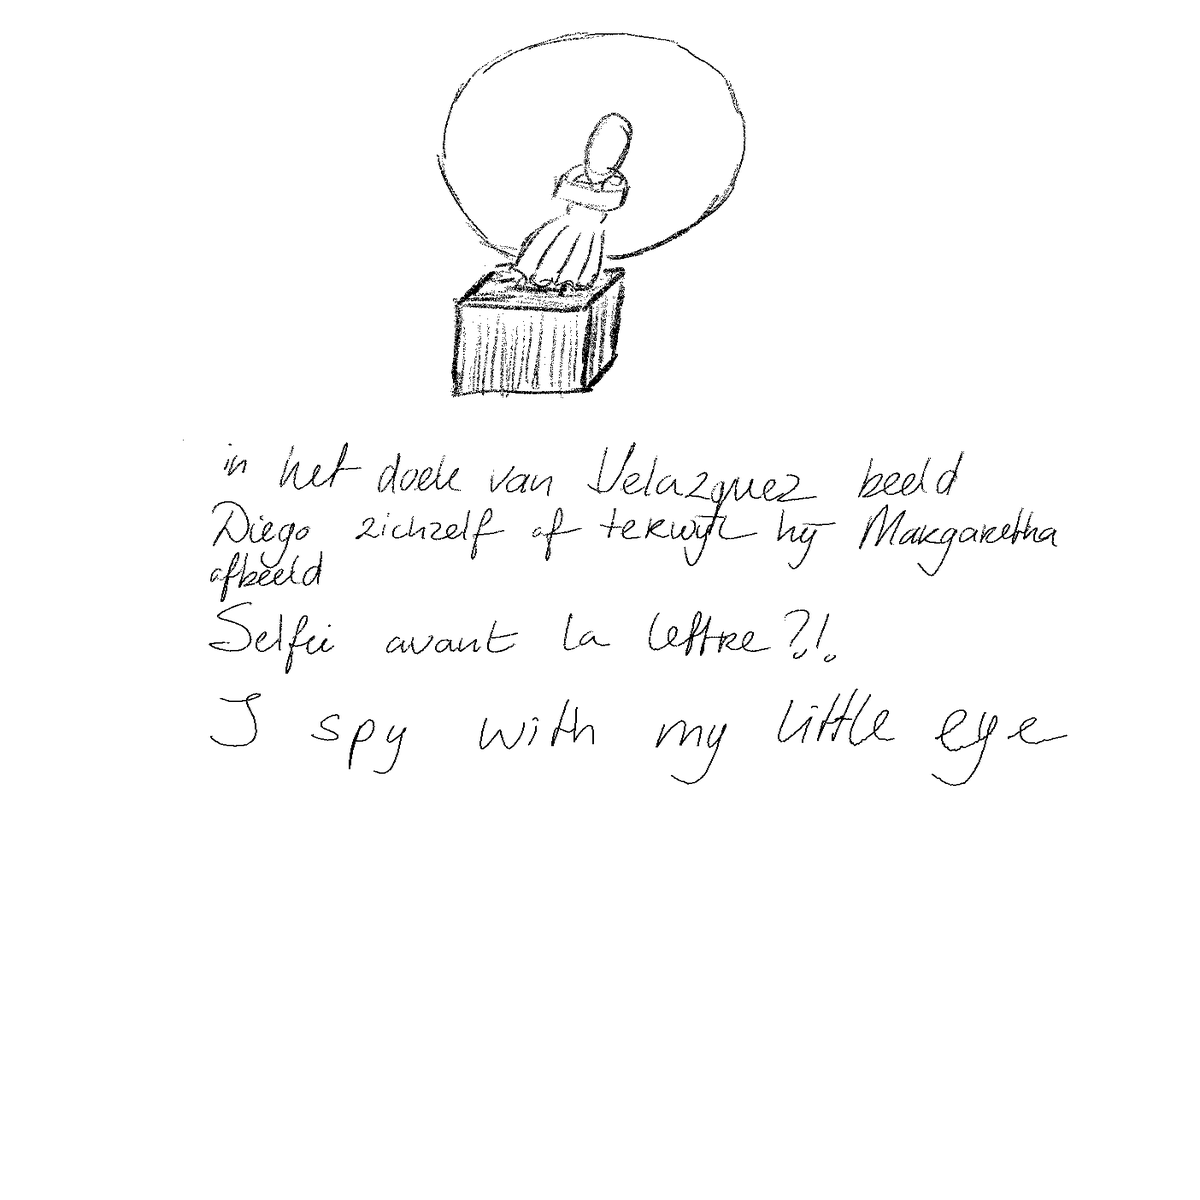 in het doek van Velazquez beeld
Diego zichzelf af terwijl hij Margaretha
afbeeld
Selfie avant la lettre?!.
I spy with my little eye